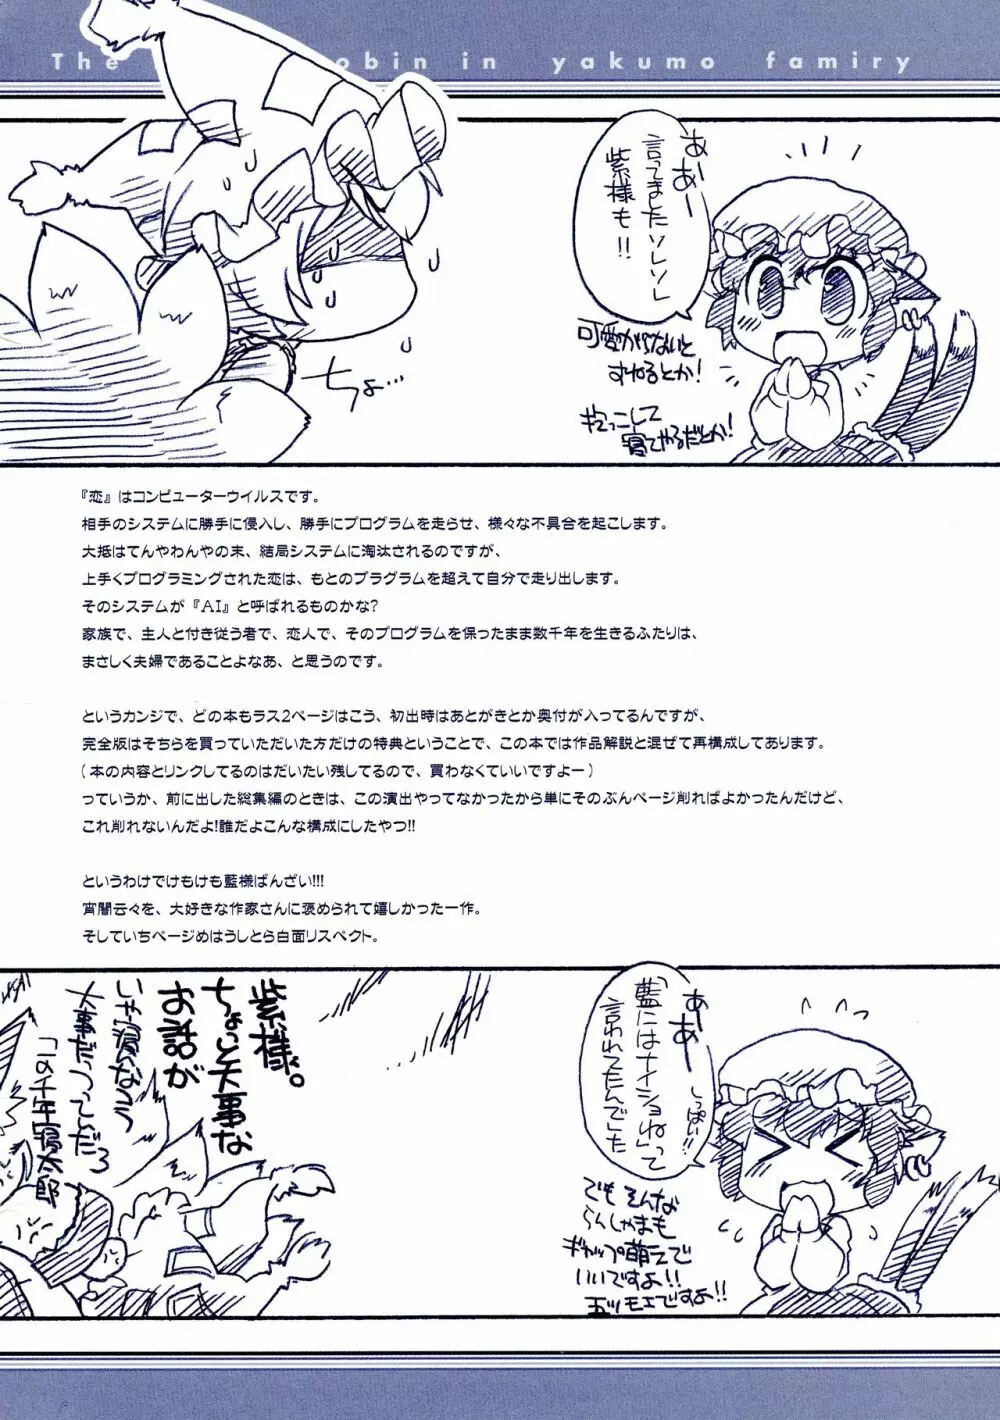 The obin in yakumo famiry
あーあー
言ってましたソレソレ
紫様も!!
可愛がらないと
すねるとか!
ぎゅってして
寝てやるだとか!
ちょ…
『恋』はコンピューターウイルスです。
相手のシステムに勝手に侵入し、勝手にプログラムを走らせ、様々な不具合を起こします。
大抵はてんやわんやの末、結局システムに淘汰されるのですが、
上手くプログラミングされた恋は、もとのプラグラムを超えて自分で走り出します。
そのシステムが『AI』と呼ばれるものかな?
家族で、主人と付き従う者で、恋人で、そのプログラムを保ったまま数千年を生きるふたりは、
まさしく夫婦であることよなあ、と思うのです。
というカンジで、どの本もラス2ページはこう、初出時はあとがきとか奥付が入ってるんですが、
完全版はそちらを買っていただいた方だけの特典ということで、この本では作品解説と混ぜて再構成してあります。
(本の内容とリンクしてるのはだいたい残してるので、買わなくていいですよー)
っていうか、前に出した総集編のときは、この演出やってなかったから単にそのぶんページ削ればよかったんだけど、
これ削れないんだよ!誰だよこんな構成にしたやつ!!
というわけでけもけも藍様ばんざい!!!
宵闇云々を、大好きな作家さんに褒められて嬉しかった一作。
そしていちページめはうしとら白面リスペクト。
あーあー
「藍にはナイショね」って
言われてたんでした
しっぱい!!
でもそんな
らんしゃまも
ギャップ萌えで
いいですよ!!
五ツモエですよ!!
紫様。
ちょっと大事な
お話が
いや寝なう
大事だっつってんだろ
「この千年寝太郎